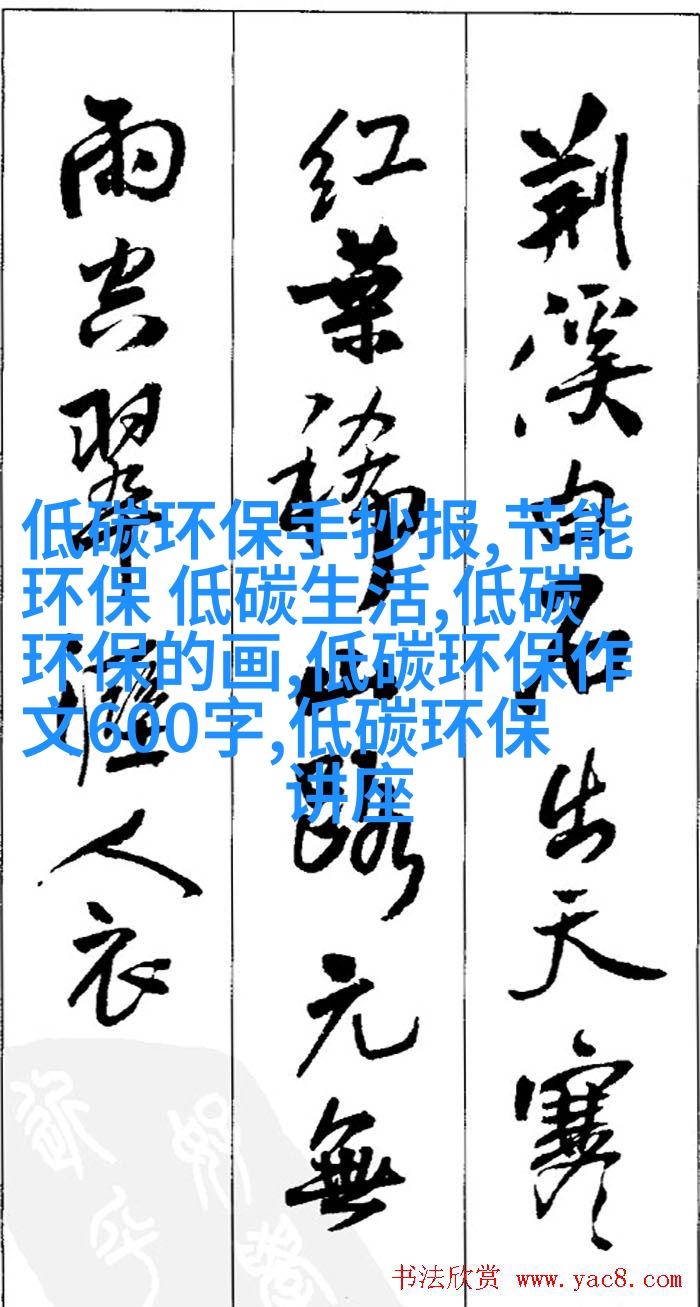 荆溪白石出天寒
红葉稀山路元無
雨空翠濕人衣
低碳环保手抄报,节能
环保 低碳生活,低碳
环保的画,低碳环保作
文600字,低碳环保
讲座
书法欣赏 www.yac8.com